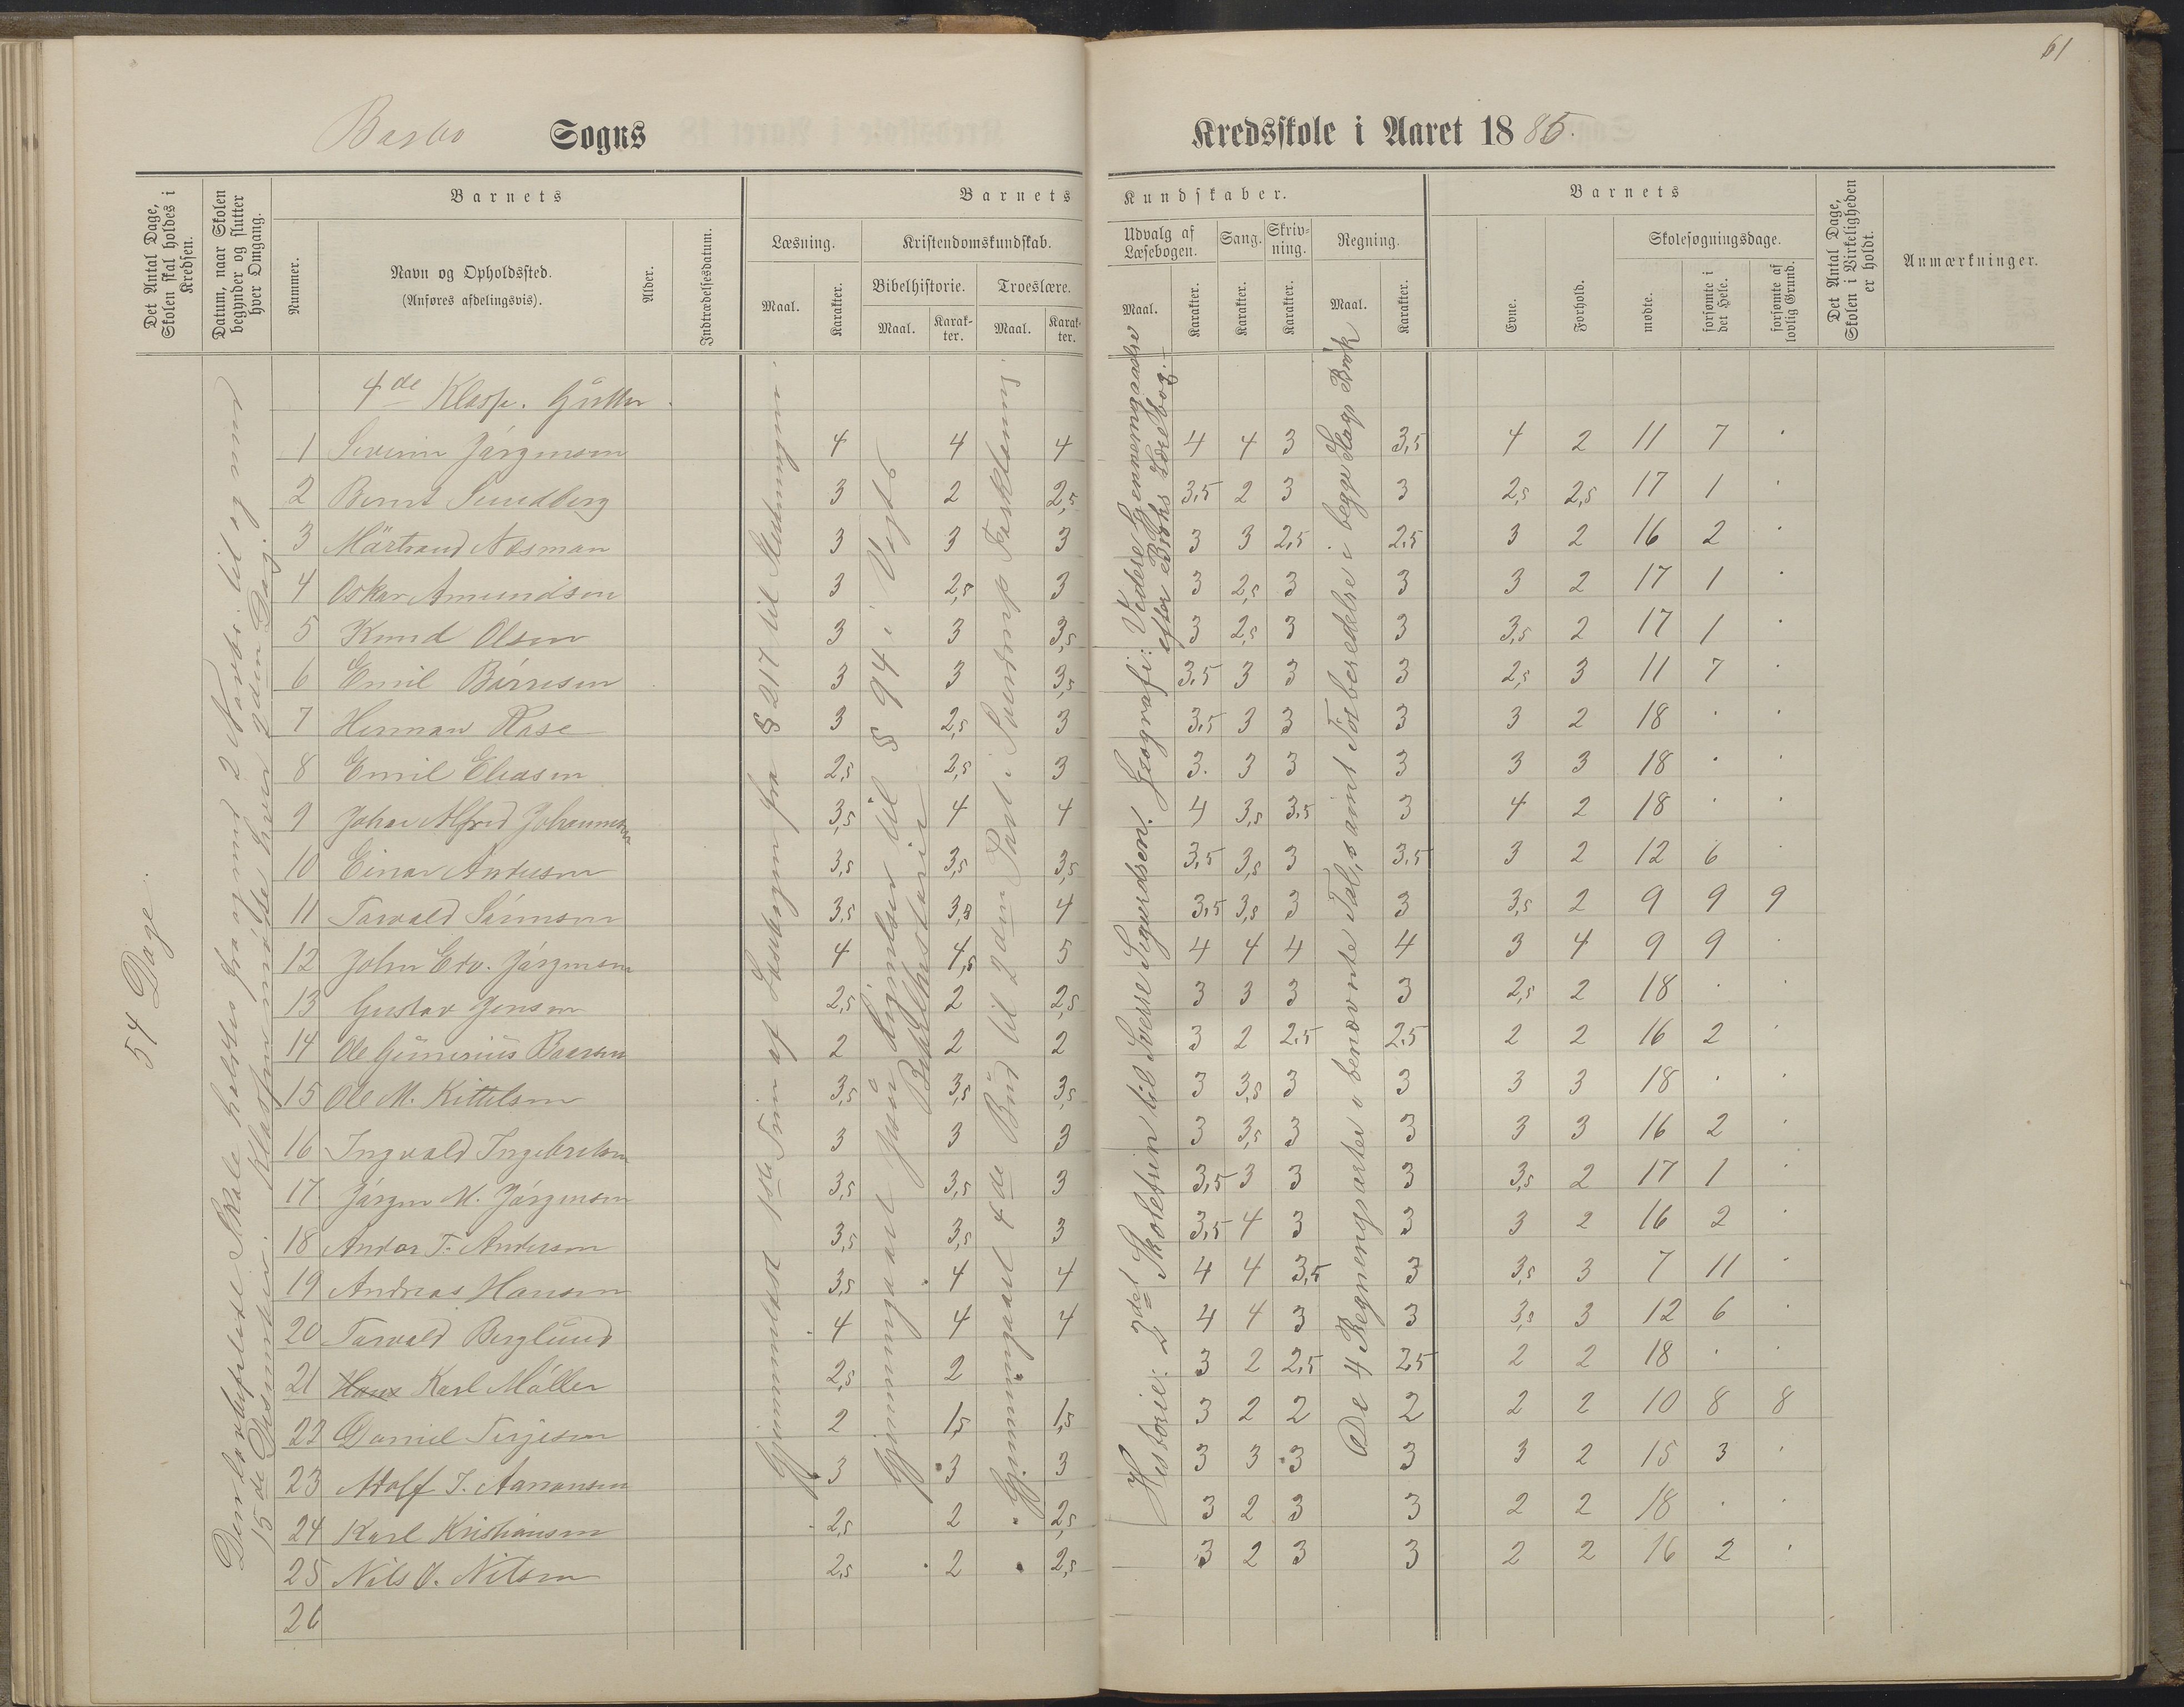 61
Barbo Sogns Kredsskole i Aaret 1885.
Det Antal Dage, Skolen skal holdes i Kredsen.
Datum, naar Skolen begynder og slutter hver Omgang.
Barnets
Nummer.
Navn og Opholdssted.
(Anføres afdelingsvis).
Alder.
Indtrædelsesdatum.
Barnets Kundskaber.
Læsning.
Maal.
Karakter.
Kristendomskundskab.
Bibelhistorie.
Maal.
Karakter.
Troeslære.
Maal.
Karakter.
Udvalg af Læsebogen.
Maal.
Karakter.
Sang.
Karakter.
Skrivning.
Karakter.
Regning.
Maal.
Karakter.
Barnets
Evne.
Forhold.
Skolesøgningsdage.
mødte.
forsømte i det Hele.
forsømte af lovlig Grund.
Det Antal Dage, Skolen i Virkeligheden er holdt.
Anmærkninger.
54 Dage.
Skole holdtes fra og med 2 Novbr. til og med
15de Desember. Klassen mødte hver 2den Dag.
Gjennemlæst 1ste Trin af Læsebogen fra § 217 til Slutningen.
Gjennemgaaet til § 94 i Vogts
Bibelhistorie
Gjennemgaaet 4de Bud til 2den Part i Sverdrups Forklaring.
Historie: 2det Skoletrin til Sverre Sigurdsen. Geografi: Videre Gjennemgaaelse
efter Eriks Læsebog.
De 4 Regningsarter i benævnte Tal, samt Forberedelse i begge Slags Brøk
4de Klasse. Gutter.
1 Severin Jørgensen 4 4 4 4 4 3 3,5 4 2 11 7 .
2 Bernt Sundberg 3 2 2,5 3,5 2 3 3 2,5 2,5 17 1 .
3 Märtrand Næsman 3 3 3 3 3 2,5 2,5 3 2 16 2 .
4 Oskar Amundsen 3 2,5 3 3 2,5 3 3 3 2 17 1 .
5 Knud Olsen 3 3 3,5 3 2,5 3 3 3,5 2 17 1 .
6 Emil Børresen 3 3 3,5 3,5 3 3 3 2,5 3 11 7 .
7 Herman Rose 3 2,5 3 3,5 3 3 3 3 2 18 . .
8 Emil Eliasen 2,5 2,5 3 3. 3 3 3 3 3 18 . .
9 Johan Alfred Johannesen 3,5 4 4 4 3,5 3,5 3 4 2 18 . .
10 Einar Andersen 3,5 3,5 3,5 3,5 3,5 3 3,5 3 2 12 6 .
11 Torvald Sørensen 3,5 3,5 4 3,5 3,5 3 3 3,5 2 9 9 9
12 John Edv. Jørgensen 4 4,5 5 4 4 4 4 3 4 9 9 .
13 Gustav Jensen 2,5 2 2,5 3 3 3 3 2,5 2 18 . .
14 Ole Gunerius Baarsen 2 2 2 3 2 2,5 2,5 2 2 16 2 .
15 Ole M. Kittelsen 3,5 3,5 3,5 3 3,5 3 3 3 3 18 . .
16 Ingvald Ingebretsen 3 3 3 3 3,5 3 3 3 3 16 2 .
17 Jørgen M. Jørgensen 3,5 3,5 3 3,5 3 3 3 3,5 2 17 1 .
18 Andor T. Andersen 3,5 3,5 3 3,5 4 3 3 3 2 16 2 .
19 Andreas Hansen 3,5 4 4 4 4 3,5 3 3,5 3 7 11 .
20 Torvald Berglund 4 4 4 4 4 3 3 3,5 3 12 6 .
21 Hans Karl Møller 2,5 2 3 2 2,5 2,5 2 2 18 . .
22 Daniel Terjesen 2 1,5 1,5 3 2 2 2 2 2 10 8 8
23 Adolf J. Aanonsen 3 3 3 3 3 3 3 3 2 15 3 .
24 Karl Kristiansen 2,5 2 2,5 3 2 3 3 2 2 18 . .
25 Nils O. Nilsen 2,5 2 2,5 3 2 3 3 2 2 16 2 .
26